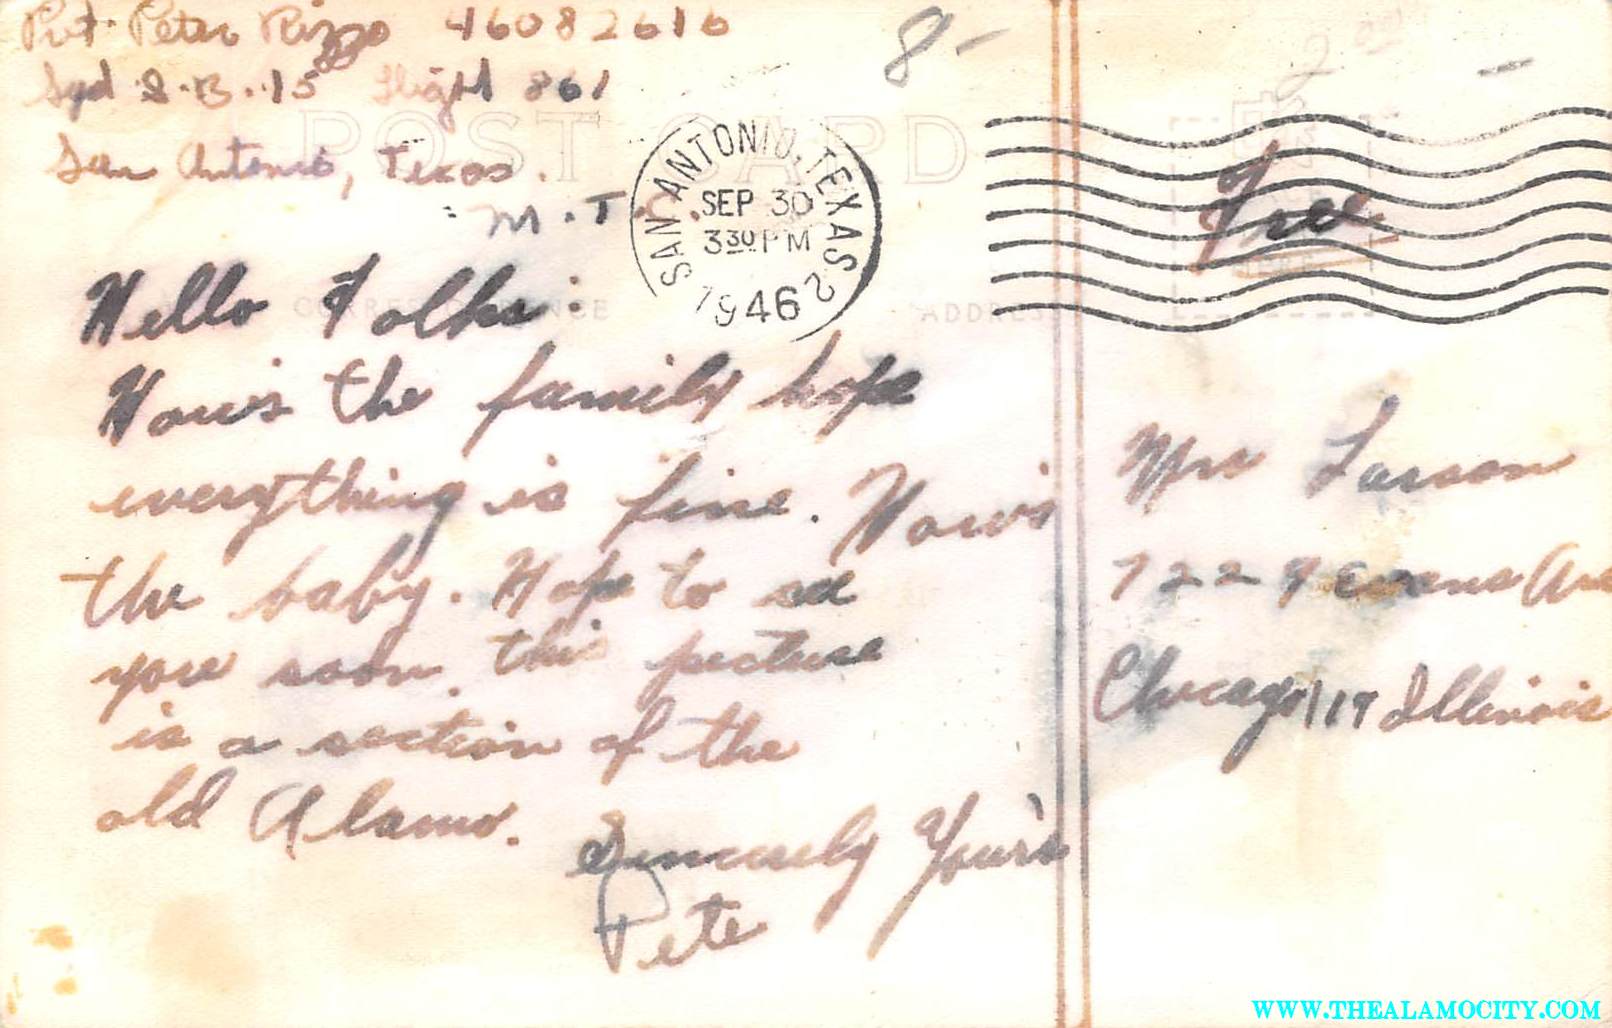 Pvt. Peter Rizzo 46082616
Sqd S-B-15 Flight 861
San Antonio, Texas.
M.T.
POST CARD
SAN ANTONIO, TEXAS 2
SEP 30
3 30 PM
1946
8-
Free
CORRESPONDENCE
ADDRESS
HERE
Hello Folks:
How's the family hope
everything is fine. How's
the baby. Hope to see
you soon. this picture
is a section of the
old Alamo.
Sincerely Your's
Pete
Mrs Larson
7229 Evans Ave
Chicago, 19 Illinois
WWW.THEALAMOCITY.COM